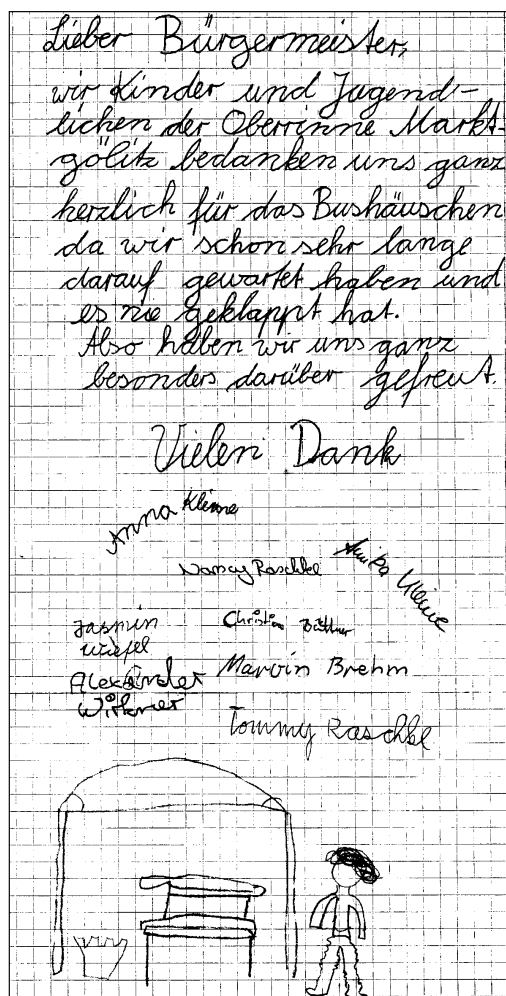 Lieber Bürgermeister,
wir Kinder und Jugend-
lichen der Oberrinne Markt-
gölitz bedanken uns ganz
herzlich für das Bushäuschen
da wir schon sehr lange
darauf gewartet haben und
es nie geklappt hat.
Also haben wir uns ganz
besonders darüber gefreut.
Vielen Dank
Anna Kleine
Nancy Raschke
Annika Kleine
Jasmin
Christin
Alexander
Marvin Brehm
Tommy Raschke